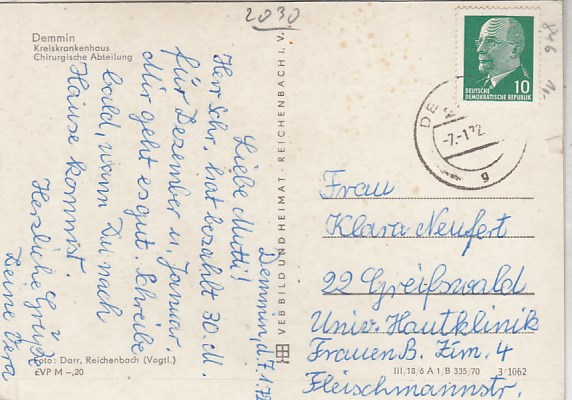 2030
Demmin
Kreiskrankenhaus
Chirurgische Abteilung
Demmin, d. 7.1.72
Liebe Mutti!
Herr Schr. hat bezahlt 30.M.
für Dezember u. Januar.
Mir geht es gut. Schreibe
bald, wann Du nach
Hause kommst.
Herzliche Grüße
Deine Vera
Foto: Darr, Reichenbach (Vogtl.)
EVP M –,20
VEB BILD UND HEIMAT · REICHENBACH I. V.
DEUTSCHE
DEMOKRATISCHE REPUBLIK
10
DE
-7.-1.72
g
Frau
Klara Neufert
22 Greifswald
Univ. Hautklinik
Frauen B. Zim. 4
Fleischmannstr.
III/18/6 A 1/B 335/70
3/1062